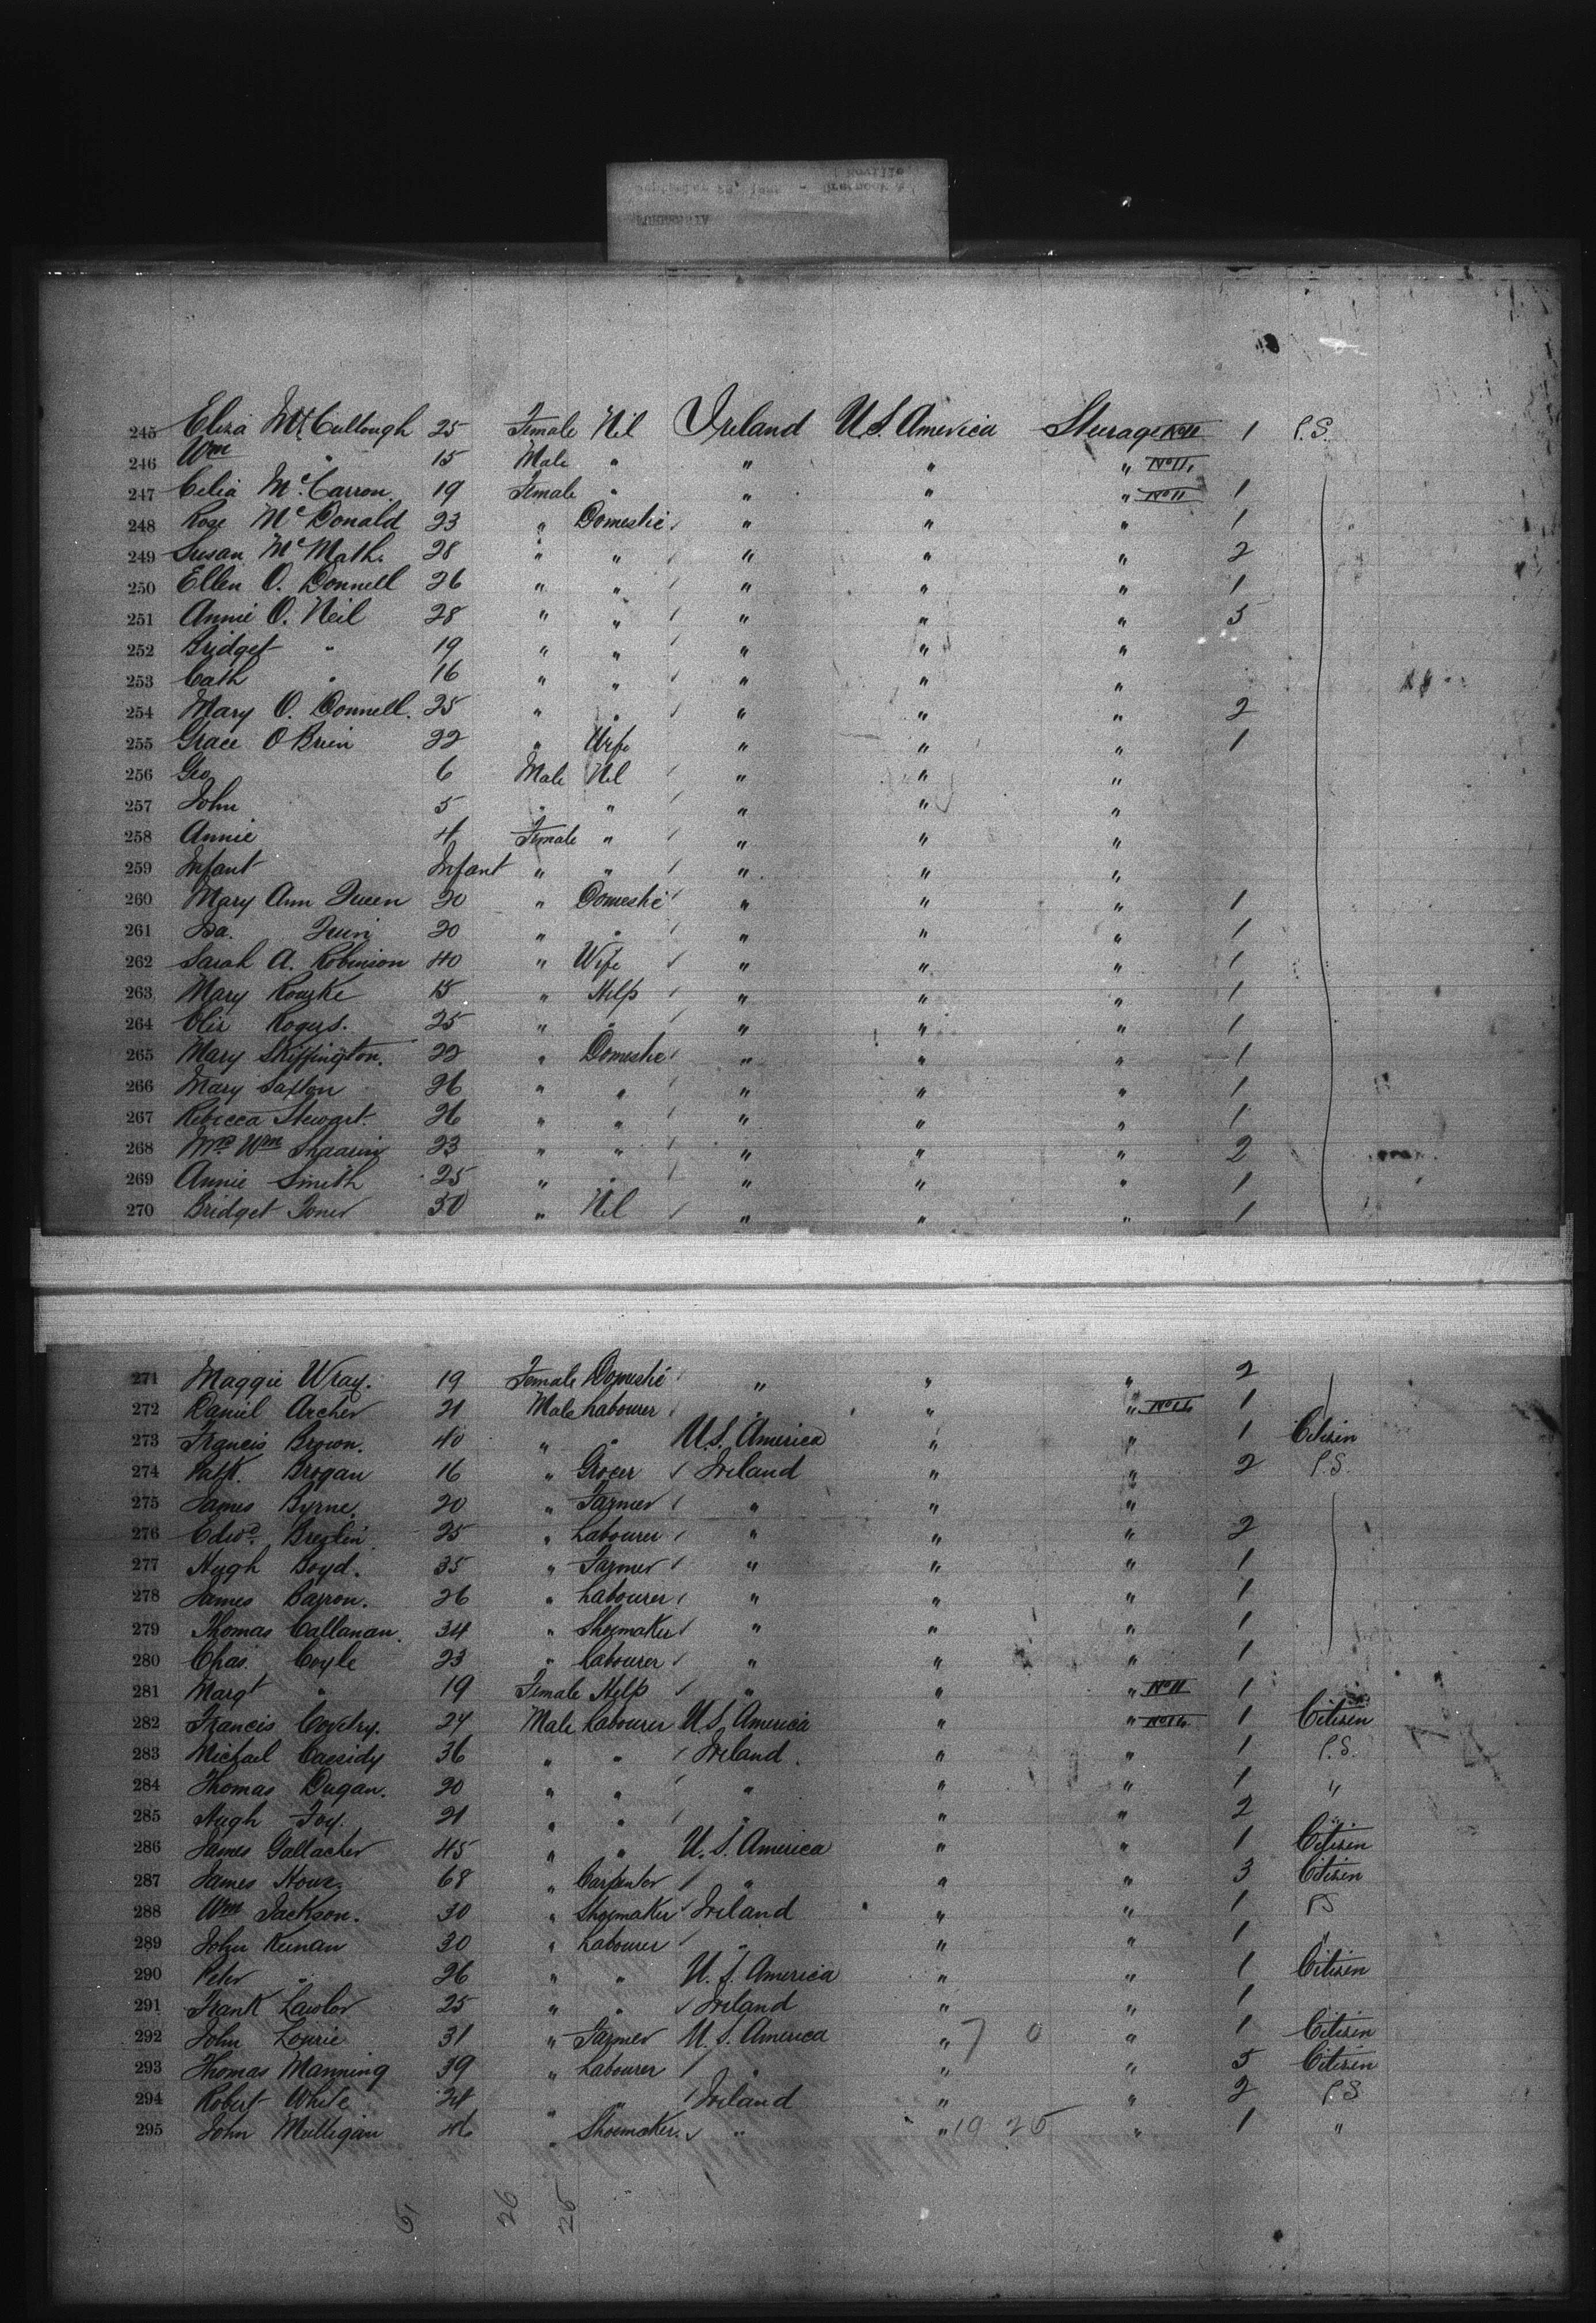 245 Eliza McCullough 25 Female Nil Ireland U.S. America Steerage No 11 1 P.S.
246 Wm " 15 Male " " " " No 11
247 Celia McCarron 19 Female " " " " No 11 1
248 Rose McDonald 23 " Domestic " " " 1
249 Susan McMath. 28 " " " " " 2
250 Ellen O. Donnell 26 " " " " " 1
251 Annie O. Neil 28 " " " " " 5
252 Bridget " 19 " " " " "
253 Cath " 16 " " " " "
254 Mary O. Donnell. 25 " " " " " 2
255 Grace O Brien 22 " Wife " " " 1
256 Geo 6 Male Nil " " "
257 John 5 " " " " "
258 Annie 4 Female " " " "
259 Infant Infant " " " " "
260 Mary Ann Queen 20 " Domestic " " " 1
261 Isa. 20 " " " " " 1
262 Sarah A. Robinson 40 " Wife " " " 1
263 Mary Rourke 15 " Help " " " 1
264 Rogers. 25 " " " " " 1
265 Mary Skiffington. 22 " Domestic " " " 1
266 Mary Saxton 26 " " " " " 1
267 Rebecca Stewart. 26 " " " " " 1
268 Mrs Wm 23 " " " " " 2
269 Annie Smith 25 " " " " " 1
270 Bridget Toner 30 " Nil " " " 1
271 Maggie Wray. 19 Female Domestic " " " 2
272 Daniel Archer 21 Male Labourer " " " No 16 1
273 Francis Brown. 40 " " U.S. America " " 1 Citizen
274 Patk. Brogan 16 " Grocer Ireland " " 2 P.S.
275 James Byrne. 20 " Farmer " " "
276 Edwd. Breslin 25 " Labourer " " " 2
277 Hugh Boyd. 35 " Farmer " " " 1
278 James Barron. 26 " Labourer " " " 1
279 Thomas Callanan. 34 " Shoemaker " " " 1
280 Chas. Coyle 23 " Labourer " " " 1
281 Margt " 19 Female Help " " " No 11 1
282 Francis 24 Male Labourer U.S. America " " No 16 1 Citizen
283 Michael Cassidy 36 " " Ireland " " 1 P.S.
284 Thomas Dugan. 20 " " " " " 1 "
285 Hugh Foy. 21 " " " " " 2 "
286 James Gallacher 45 " " U.S. America " " 1 Citizen
287 James 68 " Carpenter " " " 3 Citizen
288 Wm Jackson. 30 " Shoemaker Ireland " " 1 PS
289 John Keenan 30 " Labourer " " " 1 "
290 Peter " 26 " " U.S. America " " 1 Citizen
291 Frank Lawlor 25 " " Ireland " " 1
292 John Lourie 31 " Farmer U.S. America " 7 0 " 1 Citizen
293 Thomas Manning 39 " Labourer " " " 5 Citizen
294 Robert White 24 " " Ireland " " 2 P.S
295 John Mulligan 46 " Shoemaker. " " 19 26 " 1 "
51 26 25